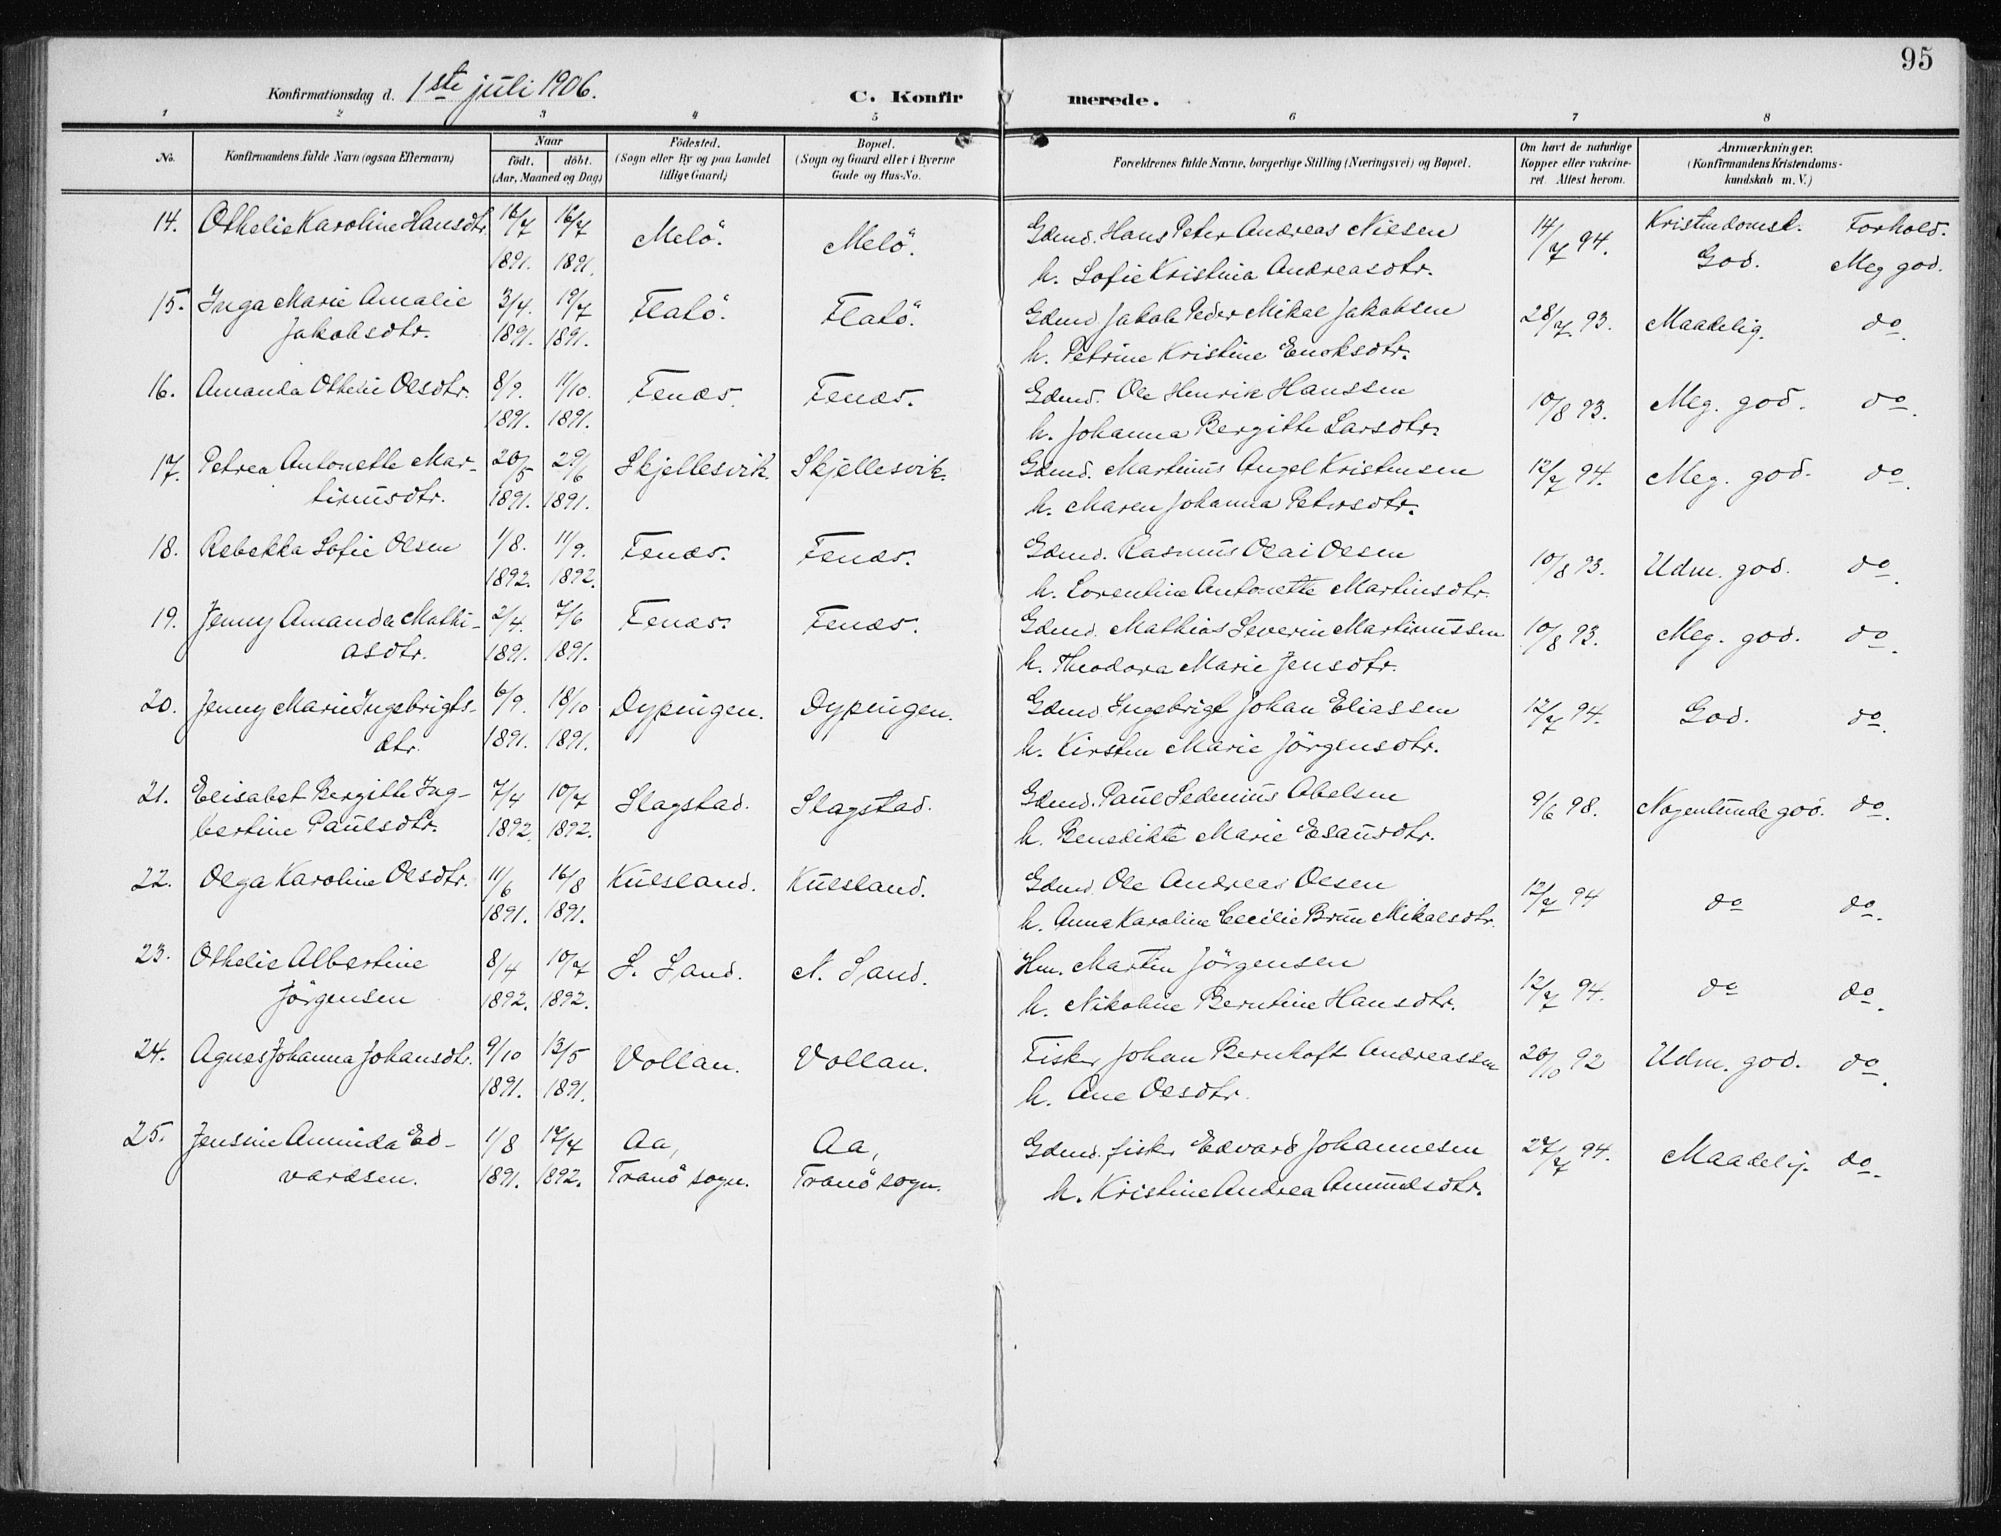 95
Konfirmationsdag d. 1ste juli 1906. C. Konfirmerede.
1 2 3 4 5 6 7 8
No. Konfirmandens fulde Navn (ogsaa Efternavn) Naar født. døbt. (Aar, Maaned og Dag) Fødested. (Sogn eller By og paa Landet tillige Gaard) Bopæl. (Sogn og Gaard eller i Byerne Gade og Hus-No. Forældrenes fulde Navne, borgerlige Stilling (Næringsvei) og Bopæl. Om havt de naturlige Kopper eller vakcineret. Attest herom. Anmærkninger. (Konfirmandens Kristendomskundskab m. V.)
14. Othelie Karoline Hansdtr. 16/7 16/7 Melö. Melö. Gdmd. Hans Peter Andreas Nilsen 14/7 94. Kristendomsk. Forhold.
1891. 1891. h. Sofie Kristina Andreasdtr. God. Meg god.
15. Inga Marie Amalie 3/4. 19/7 Flatö. Flatö. Gdmd Jakob Peder Mikal Jakobsen 28/7 93. Maadelig. do.
Jakobsdtr. 1891. 1891. h. Petrine Kristine Enoksdtr.
16. Amanda Othelie Olsdtr. 8/9. 11/10. Fenæs. Fenæs. Gdmd. Ole Henrik Hanssen 10/8 93. Meg. god. do.
1891. 1891. h. Johanna Bergitte Larsdtr.
17. Petrea Antonette Mar- 20/5 29/6 Skjellesvik. Skjellesvik. Gdmd. Martinus Angel Kristensen 12/7 94. Meg. god. do.
tinusdtr. 1891. 1891. h. Maren Johanna Petersdtr.
18. Rebekka Sofie Olsen 1/8. 11/9. Fenæs. Fenæs. Gdmd. Rasmus Olai Olsen 10/8 93. Udm. god. do.
1892. 1892. h. Lorentine Antonette Martinsdtr.
19. Jenny Amanda Mathi- 2/4. 7/6 Fenæs. Fenæs. Gdmd. Mathias Severin Martinussen 10/8 93. Meg. god. do.
asdtr. 1891. 1891. h. Theodora Marie Jensdtr.
20. Jenny Marie Ingebrigts- 6/9. 18/10 Dypingen. Dypingen. Gdmd Ingebrigt Johan Eliassen 12/7 94. God. do.
dtr. 1891. 1891. h. Kirsten Marie Jörgensdtr.
21. Elisabet Bergitte Ing- 7/4 10/7 Slagstad. Slagstad. Gdmd. Paul Sedenius Abelsen 9/6 98. Nogenlunde god. do.
bertine Paulsdtr. 1892 1892. h. Benedikte Marie Esausdtr.
22. Olga Karoline Olsdtr. 11/6 16/8 Kulsland. Kulsland. Gdmd. Ole Andreas Olsen 12/7 94 do do.
1891. 1891. h. Anna Karoline Cecilie Brun Mikalsdtr.
23. Othelie Albertine 8/4 10/7 S. Sand. N. Sand. Hm. Martin Jörgensen 12/7 94. do do.
Jörgensen 1892. 1892. h. Nikoline Berntine Hansdtr.
24. Agnes Johanna Johansdtr. 9/10 13/5 Vollan. Vollan. Fisker Johan Bernhoft Andreassen 20/10 92 Udm. god. do.
1891. 1891. h. Ane Olsdtr.
25. Jensine Aminda Ed- 1/8 17/7 Aa, Aa, Gdmd. fisker Edvard Johannesen 27/7 94. Maadelig. do.
vardsen. 1891. 1892. Tranö sogn. Tranö sogn. h. Kristine Andrea Amundsdtr.